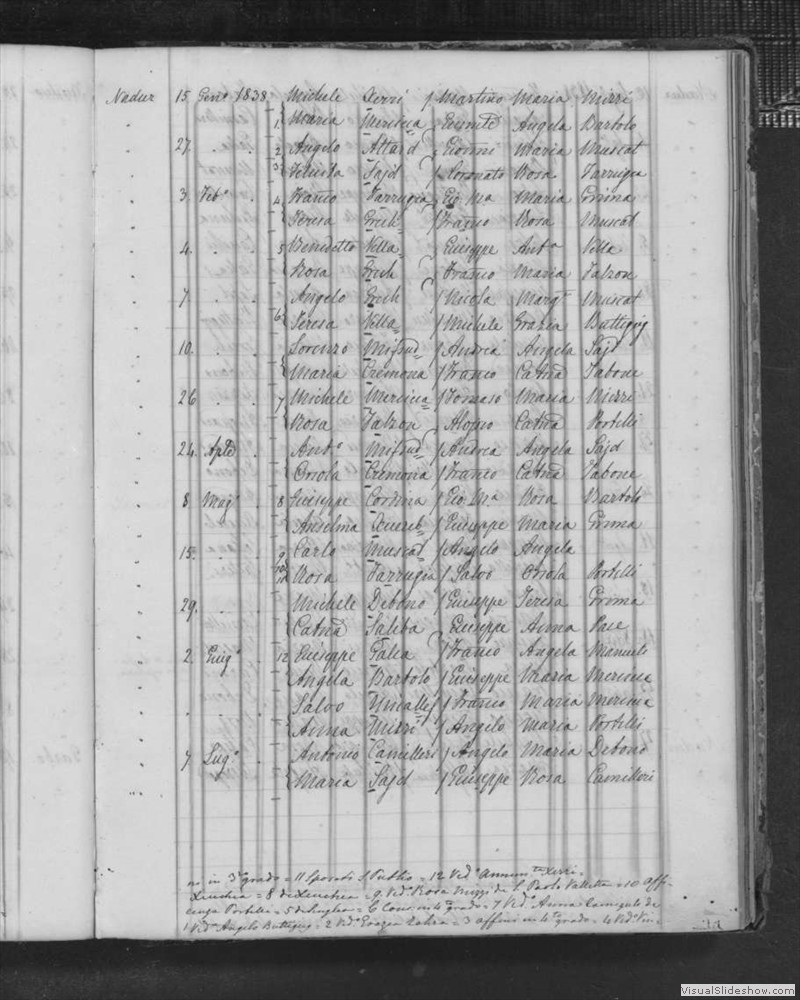 Nadur 15 Genº 1838 Michele Xerri / Martino Maria Mizzi
1 Maria Mercieca Angela Bartolo
27. 2 Angelo Attard Gionni Maria Muscat
3 Felicita Sajd / Coronato Rosa Farrugia
3. Febº 4 Franco Farrugia Gio Ma Maria Grima
Teresa Grech / Franco Rosa Muscat
4. 5 Benedetto Vella Giuseppe Antª Vella
Rosa Grech / Franco Maria Falzon
7 Angelo Grech / Nicola Margª Muscat
6 Teresa Vella / Michele Grazia Buttigieg
10. Lorenzo Mifsud / Andrea Angela Sajd
Maria Cremona / Franco Catna Tabone
26 7 Michele Mercieca / Tomaso Maria Mizzi
Rosa Falzon Catna Portelli
24. Aple Antº Mifsud / Andrea Angela Sajd
Orsola Cremona / Franco Catna Tabone
8 Magº 8 Giuseppe Cordina / Gio Ma Rosa Bartolo
Anselma / Giuseppe Maria Grima
15. 9 Carlo Muscat / Angelo Angela
10 Rosa Farrugia / Salvo Orsola Portelli
29. Michele Debono / Giuseppe Teresa Grima
Catna Saliba Giuseppe Anna Pace
2. Giugº 12 Giuseppe Falia / Franco Angela Manuele
Angela Bartolo / Giuseppe Maria Mercieca
Salvo / Franco Maria Mercieca
Anna Mizzi / Angelo Maria Portelli
7 Lugº Antonio Camilleri / Angelo Maria Debono
Maria Sajd / Giuseppe Rosa Camilleri
ni in 3º grado = 11 Sposato S. Publio = 12 Vedº Xerri.
= 8 di = 9 Vedº Rosa Mizzi da S. Paolo Valletta = 10 affi-
Portelli = 5 = 6 Cons. in 4º grado = 7 Vedª Anna de
1 Vedº Angelo Buttigieg = 2 Vedº Grazia Zahra = 3 affini in 4º grado = 4 Vedº
VisualSlideshow.com